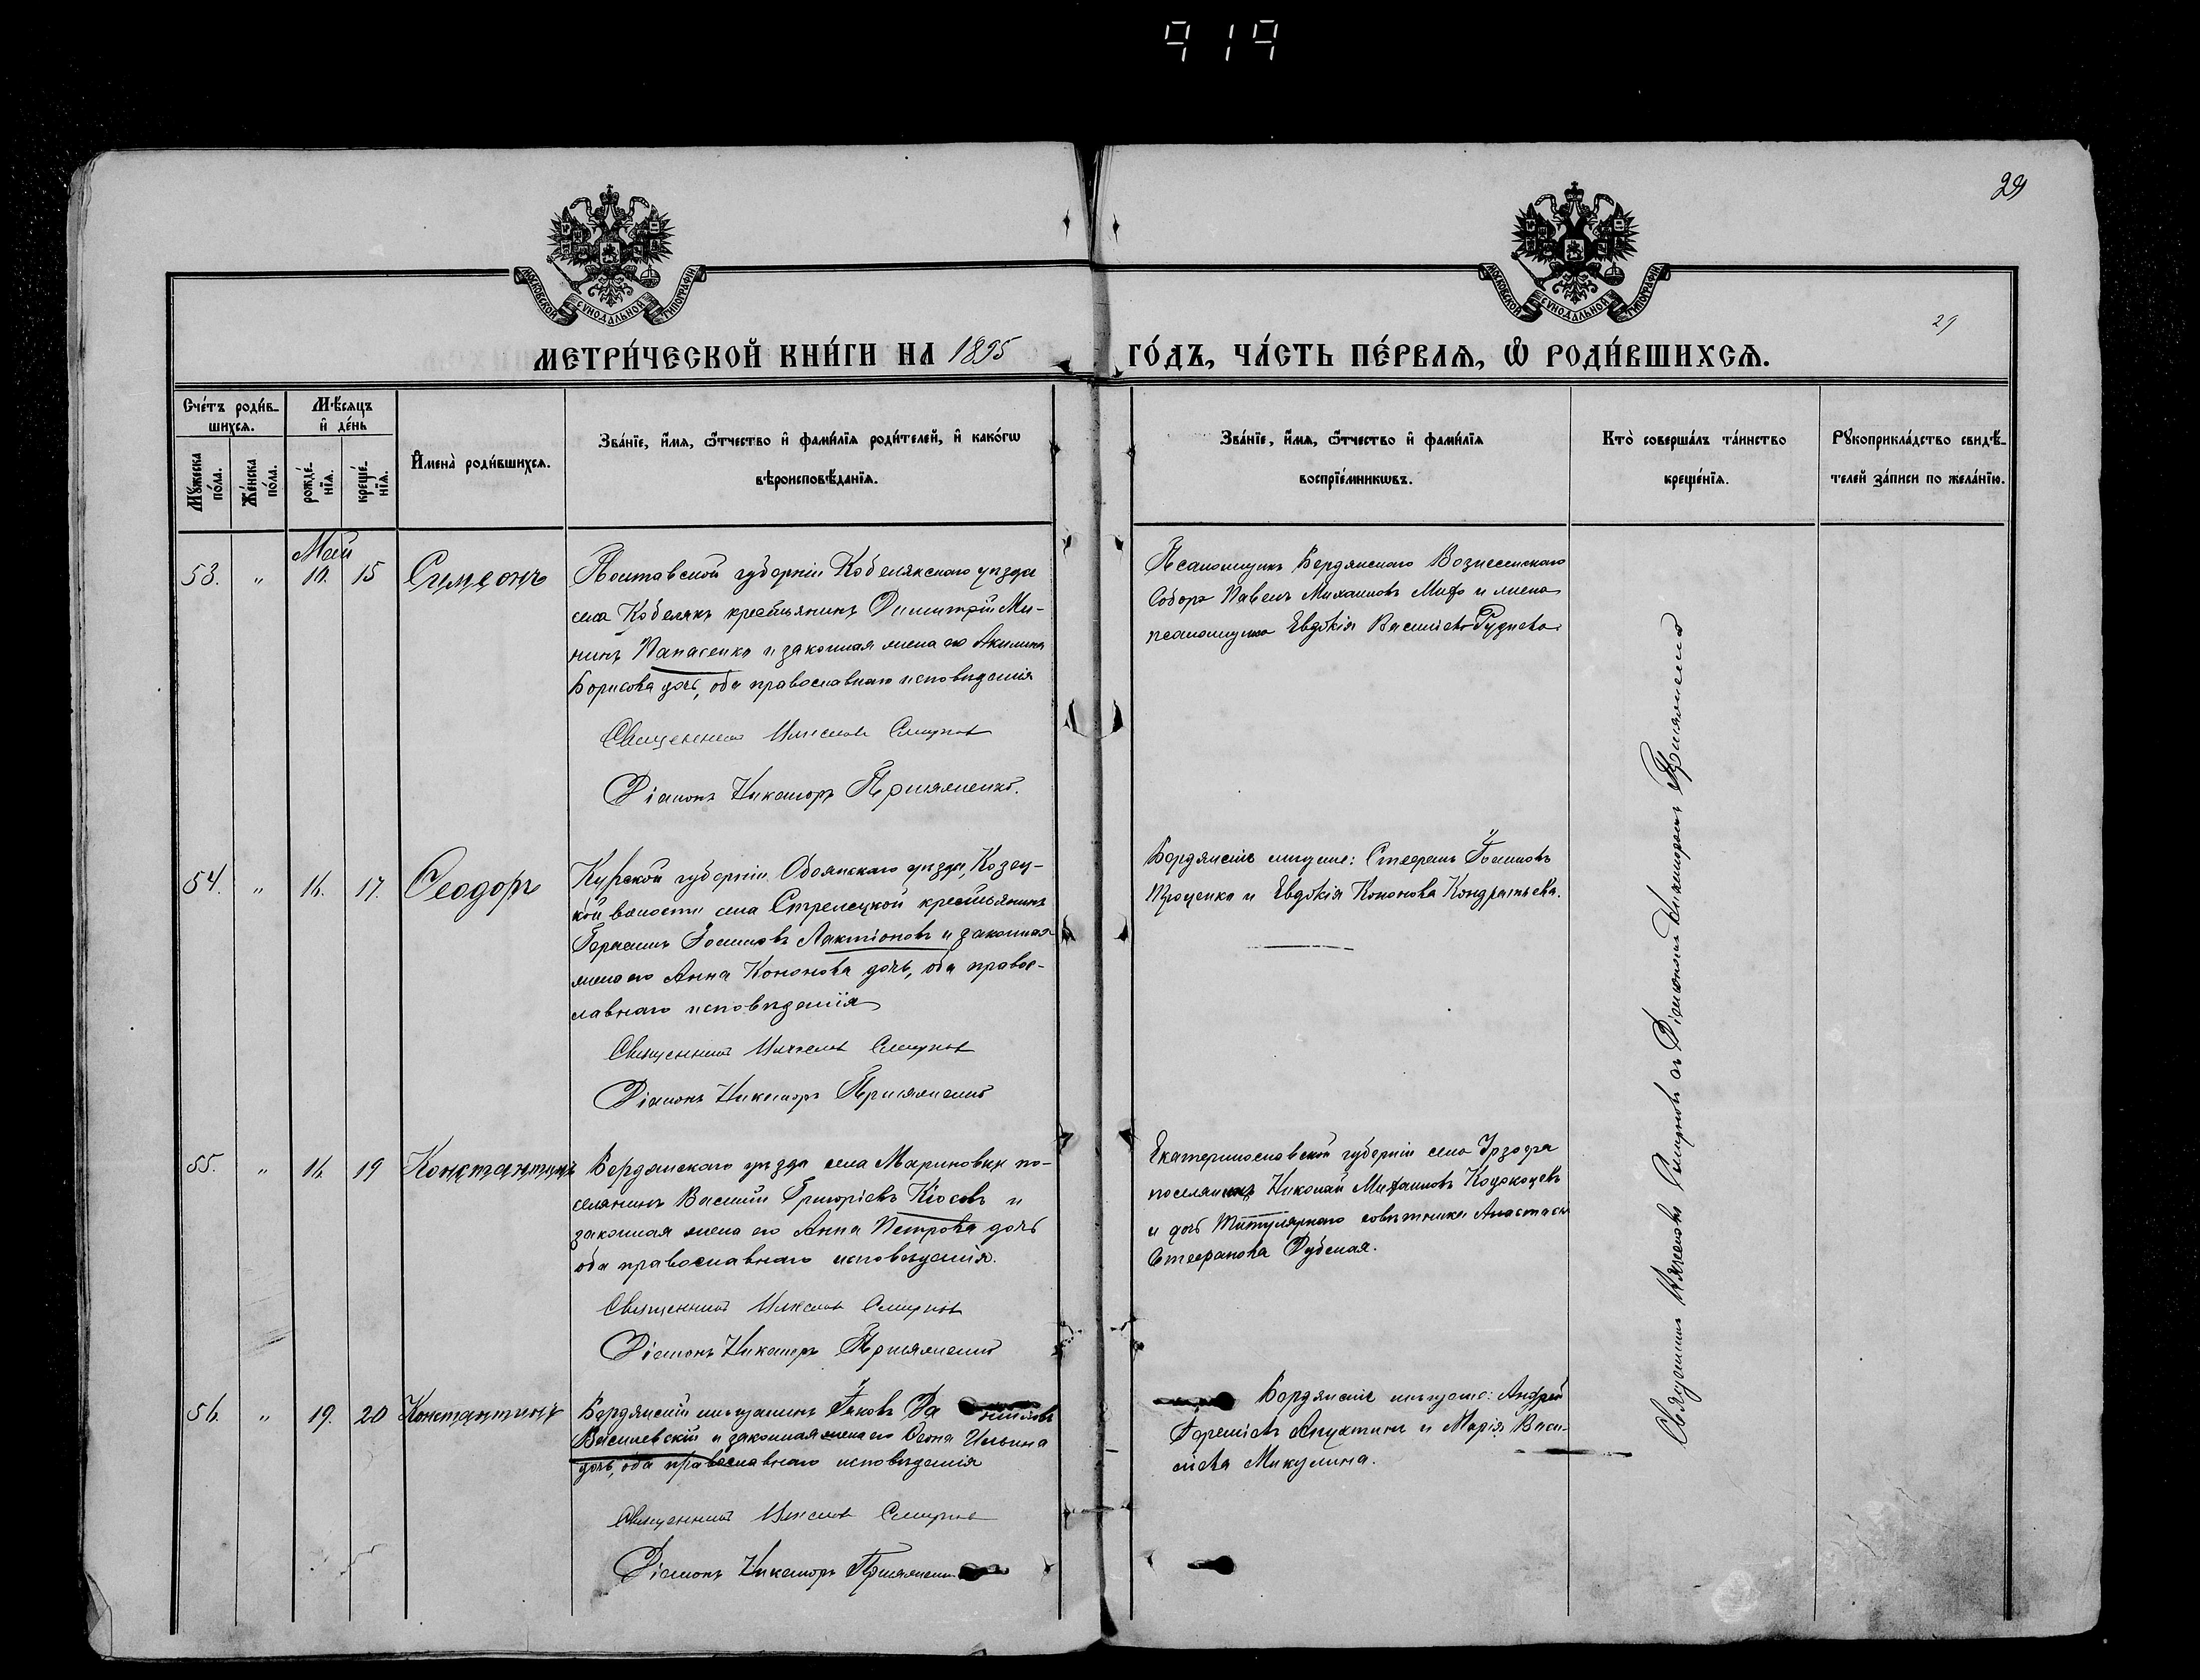 919
29
29
МОСКОВСКОЙ СУНОДАЛЬНОЙ ТИПОГРАФІИ
МОСКОВСКОЙ СУНОДАЛЬНОЙ ТИПОГРАФІИ
МЕТРИ́ЧЕСКОЙ КНИ́ГИ НА 1895 ГО́ДЪ, ЧА́СТЬ ПЕ́РВАЯ, Ѿ РОДИ́ВШИХСЯ.
Сче́тъ роди́в-
шихся.
Мѣ́сяцъ
и҆ де́нь
Мꙋ́жеска по́ла.
Же́нска по́ла.
рожде́-нїя.
креще́-нїя.
И҆мена̀ роди́вшихся.
Зва́нїе, и҆́мя, ѻ҆́тчество и҆ фами́лїя роди́телей, и҆ како́гѡ
вѣроисповѣ́данїя.
Зва́нїе, и҆́мя, ѻ҆́тчество и҆ фами́лїя
воспрїе́мникѡвъ.
Кто̀ соверша́лъ та́инство
креще́нїя.
Рꙋкоприкла́дство свидѣ́-
телей за́писи по жела́нїю.
Май
53. " 10. 15 Симеонъ
Полтавской губерніи Кобелякскаго уѣзда
села Кобелякъ крестьянинъ Димитрій Ми-
нинъ Папасенко и законная жена его Акилина
Борисова дочь, оба православнаго исповѣданія
Священникъ Смирновъ
Діаконъ Никаноръ Пришляменко.
Псаломщикъ Бердянскаго Вознесенскаго
Собора Павелъ Михаиловъ и жена
псаломщика Евдокія Васильева
54. " 16. 17. Ѳеодоръ
Курской губерніи Обоянскаго уѣзда, Козац-
кой волости села Стрелецкой крестьянинъ
Герасимъ Іосифовъ Лактіоновъ и законная
жена его Анна Кононова дочь, оба правос-
лавнаго исповѣданія
Священникъ Смирновъ
Діаконъ Никаноръ
Бердянскіе мѣщане: Стефанъ
Проценко и Евдокія Кононова Кондратьева.
55. " 16. 19 Константинъ
Бердянскаго уѣзда села Мариновки по-
селянинъ Василій Григоріевъ Кіосевъ и
законная жена его Анна Петрова дочь
оба православнаго исповѣданія.
Священникъ Смирновъ
Діаконъ Никаноръ
Екатеринославской губерніи села Урзофа
поселянинъ Николай Михаиловъ
и дочь Титулярнаго совѣтника Анастасія
Стефанова Дубская.
56. " 19. 20 Константинъ
Бердянскій мѣщанинъ Іаковъ Да ниловъ
Василевскій и законная жена его Ѳеона Ильина
дочь, оба православнаго исповѣданія
Священникъ Смирновъ
Діаконъ Никаноръ
Бердянскіе мѣщане: Андрей
Апухтинъ и Марія Васи-
льева Микулина.
Священникъ Смирновъ съ Діакономъ Никаноромъ